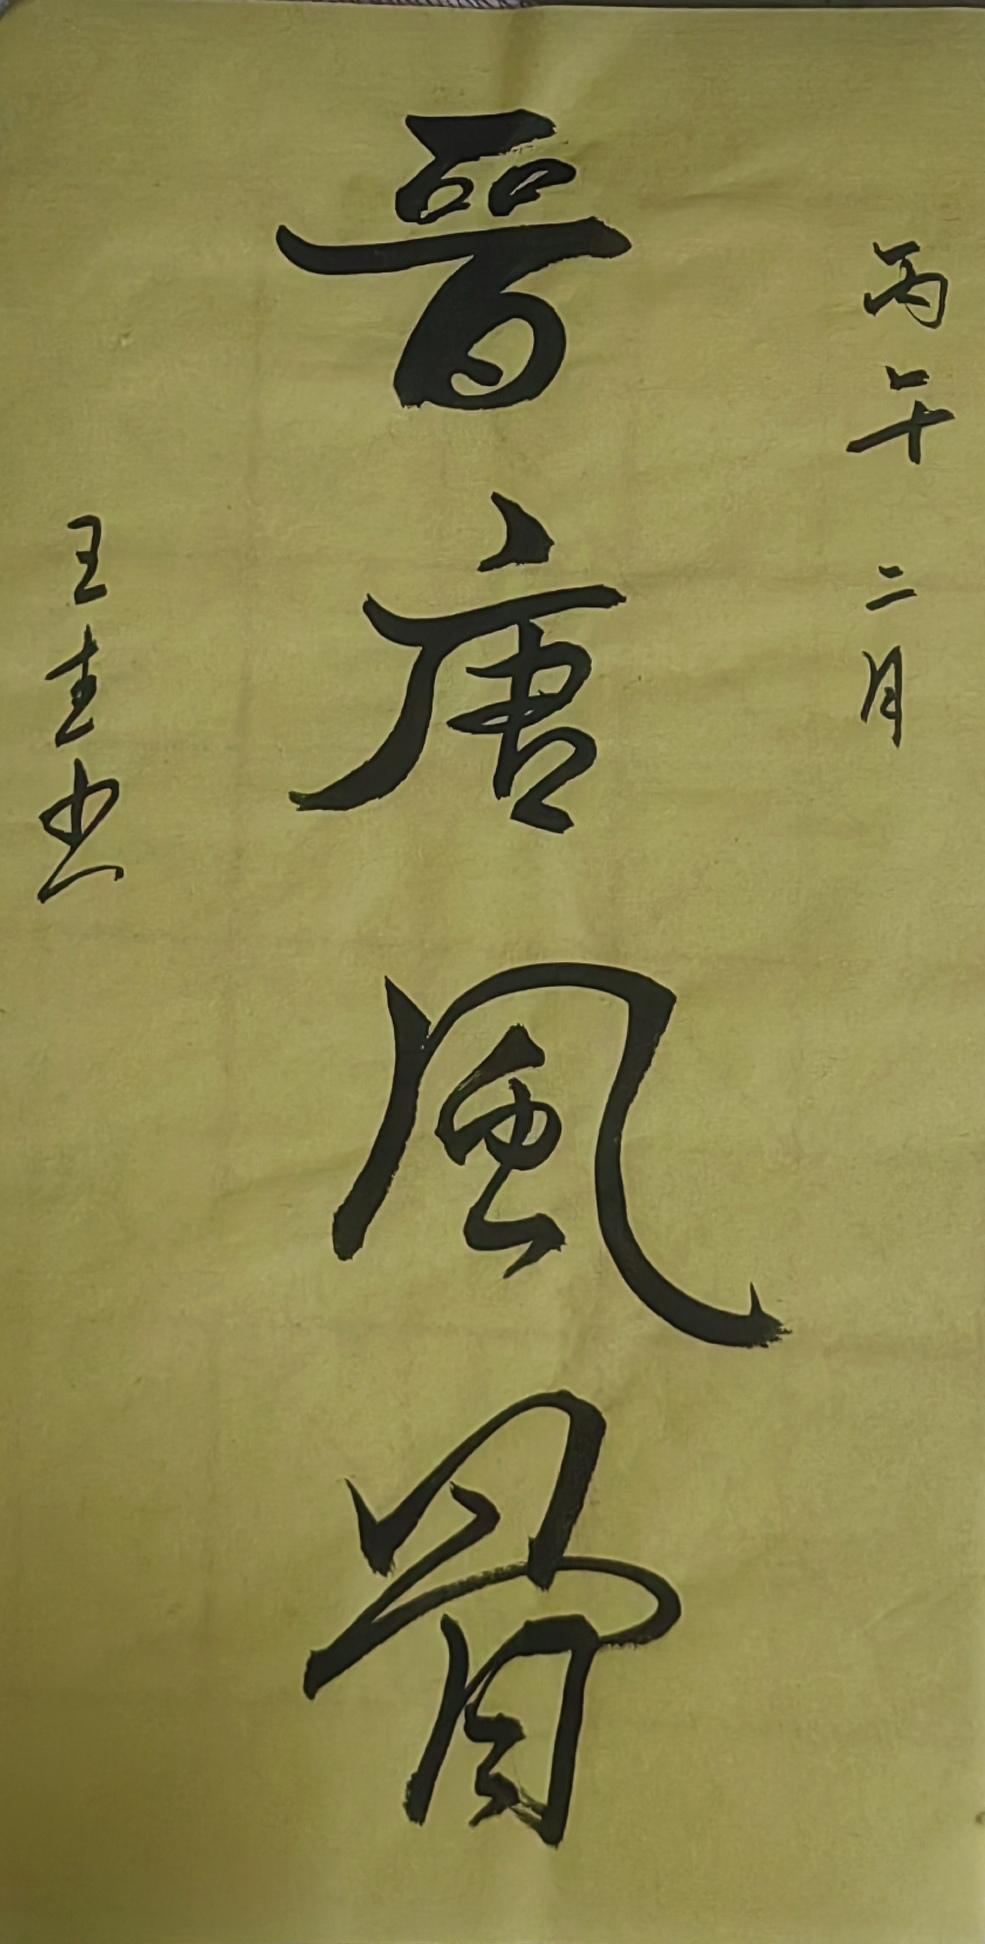 丙午二月
晋唐風骨
王圭书